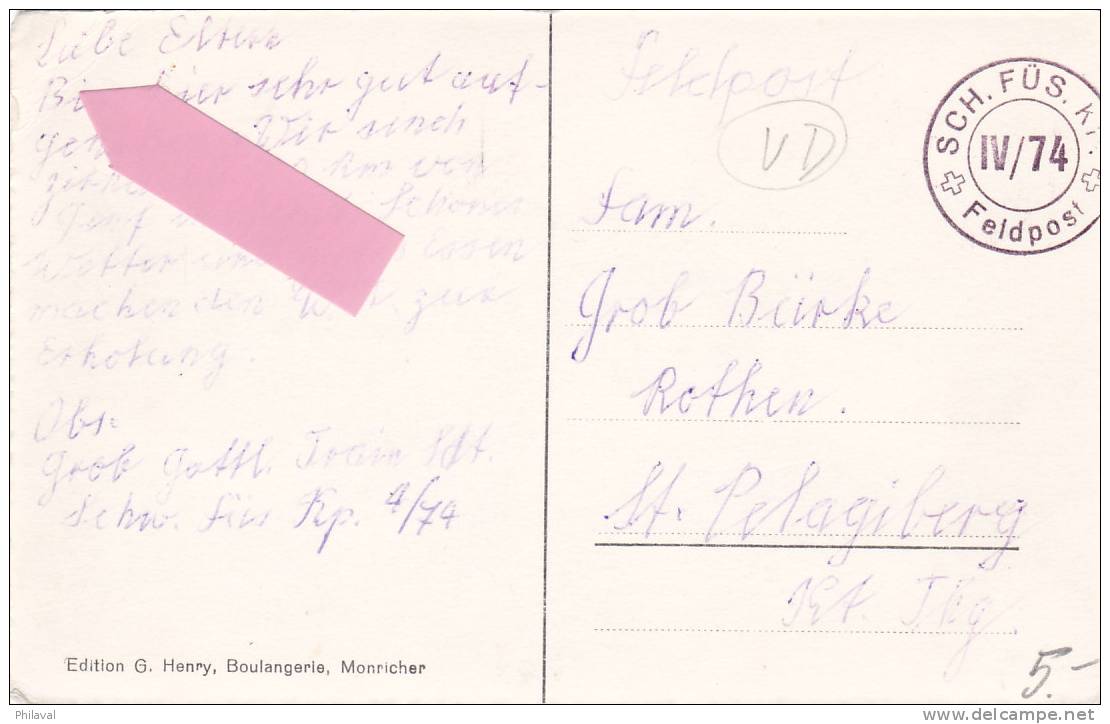 Liebe Eltern
hier sehr gut auf-
Wir sind
km von
Genf Schönes
Wetter essen
machen den zur
Erholung.
Abs:
Grob Gottl. Train Sdt.
Schw. Füs Kp. 4/74
Edition G. Henry, Boulangerie, Monricher
Feldpost
VD
SCH. FÜS.
IV/74
Feldpost
Fam.
Grob Bürke
Rothen.
St. Pelagiberg
Kt. Thg
5.-
Philaval
www.delcampe.net